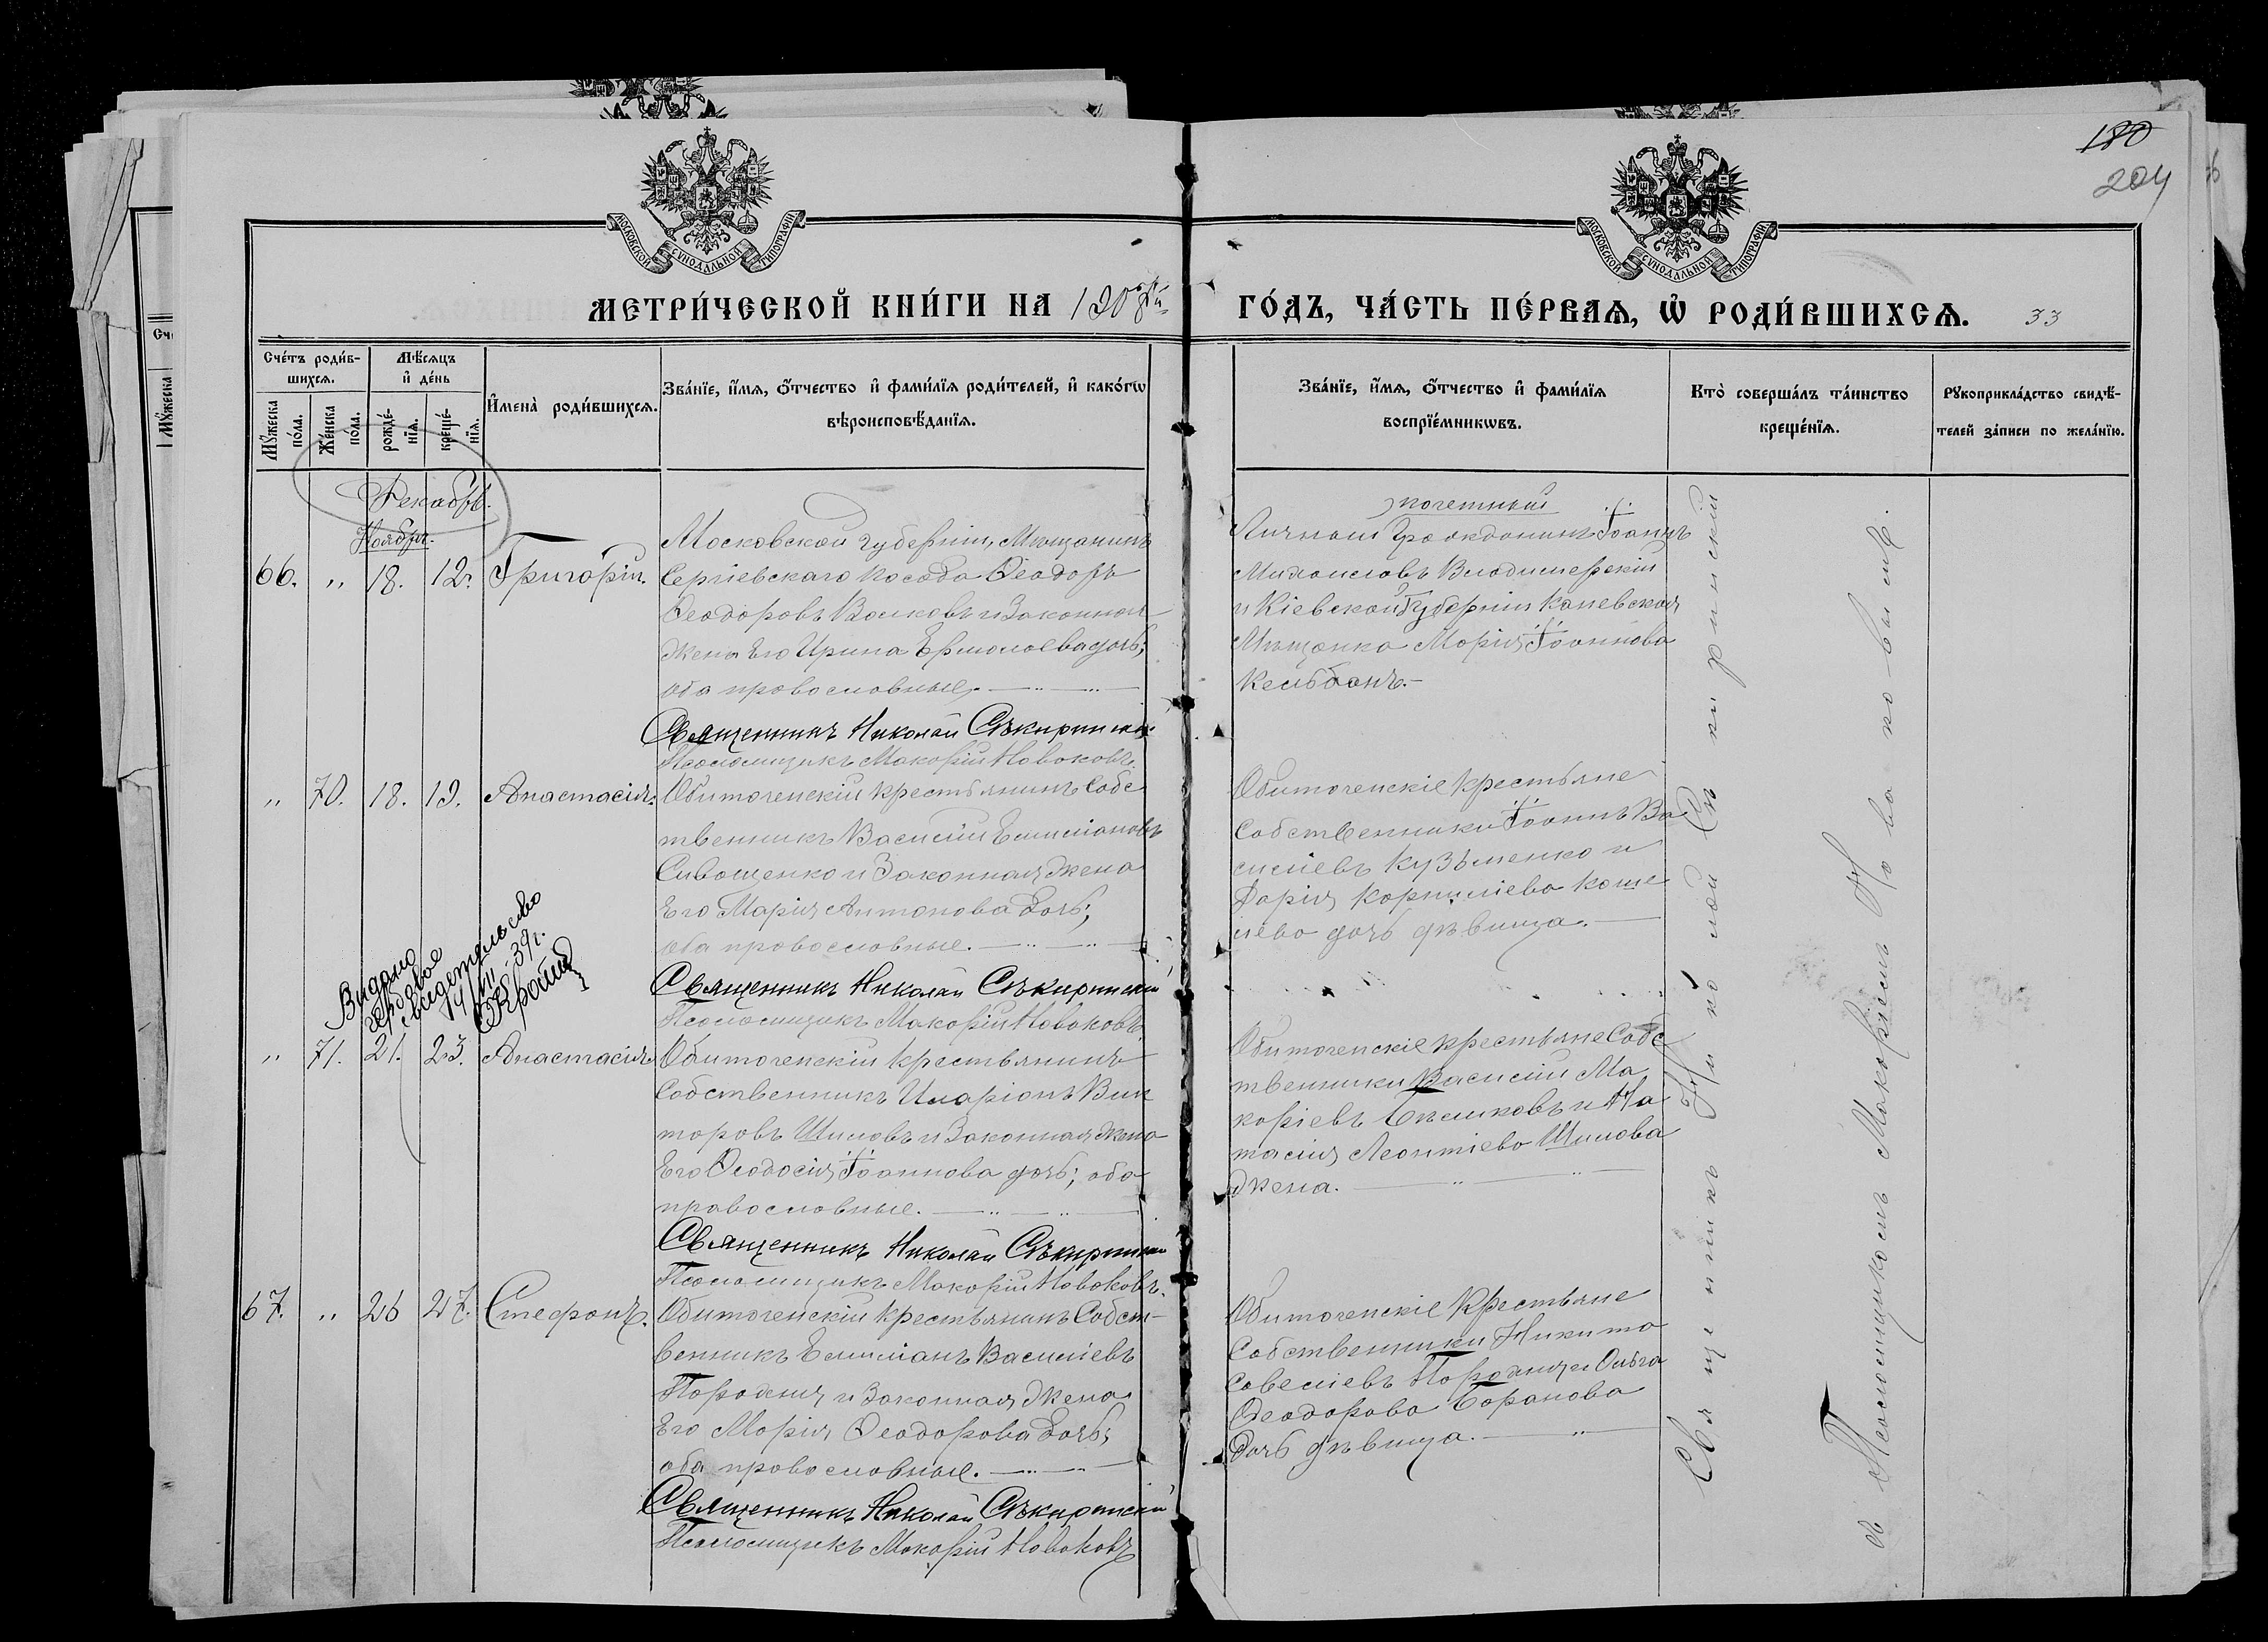 180
204
МОСКОВСКОЙ СѴНОДАЛЬНОЙ ТИПОГРАФІИ
МОСКОВСКОЙ СѴНОДАЛЬНОЙ ТИПОГРАФІИ
МЕТРИ́ЧЕСКОЙ КНИ́ГИ НА 190
ГО́ДЪ, ЧА́СТЬ ПЕ́РВАѦ, Ѡ҆ РОДИ́ВШИХСѦ. 33
Сче́тъ роди́в-
шихсѧ.
Мꙋ́жеска по́ла.
Же́нска по́ла.
Мѣ́сѧцъ
и҆ де́нь
рожде́-
нїѧ.
креще́-
нїѧ.
И҆мена̀ роди́вшихсѧ.
Зва́нїе, и҆́мѧ, ѻ҆́тчество и҆ фами́лїѧ роди́телей, и҆ како́гѡ
вѣроисповѣ́данїѧ.
Зва́нїе, и҆́мѧ, ѻ҆́тчество и҆ фами́лїѧ
воспрїе́мникѡвъ.
Кто̀ соверша́лъ та́инство
креще́нїѧ.
Рꙋкоприкла́дство свидѣ́-
телей за́писи по жела́нїю.
Декабрь.
Ноябрь.
66. " 18. 12. Григорій.
Московской губерніи, Мѣщанинъ
Сергіевскаго посада Ѳеодоръ
Ѳеодоровъ Волковъ и Законная
жена Его Ирина Ермолаева дочь;
оба православные.
Священникъ Николай Сѣкиринскій
Псаломщикъ Макарій Новаковъ.
почетный
Личный Гражданинъ Іоаннъ
Михаиловъ Владимерскій
и Кіевской Губерніи Каневская
Мѣщанка Марія Іоаннова
" 70. 18. 19. Анастасія.
Обиточенскій крестьянинъ Собс
твенникъ Василій Емиліановъ
Сивощенко и Законная жена
Его Марія Антонова дочь;
оба православные.
Священникъ Николай Сѣкиринскій
Псаломщикъ Макарій Новаковъ
Обиточенскіе крестьяне
Собственники Іоаннъ Ва
силіевъ Кузьменко и
Дарія Корниліева Коше
лева дочь дѣвица.
Видано
свидетельство
" 71. 21. 23. Анастасія.
Обиточенскій крестьянинъ
Собственникъ Иларіонъ Вик
торовъ Шиловъ и Законная жена
Его Ѳеодосія Іоаннова дочь; оба
православные.
Священникъ Николай Сѣкиринскій
Псаломщикъ Макарій Новаковъ.
Обиточенскіе крестьяне Собс
твенники Василій Ма
каріевъ Бѣликовъ и На
талія Леонтіева Шилова
жена.
67. " 26 27. Стефанъ.
Обиточенскій крестьянинъ Собст-
венникъ Емиліанъ Василіевъ
Породня и Законная жена
Его Марія Ѳеодорова дочь;
оба православные.
Священникъ Николай Сѣкиринскій
Псаломщикъ Макарій Новаковъ
Обиточенскіе Крестьяне
Собственники Никита
Савеліевъ Породня и Ольга
Ѳеодорова Баранова
дочь дѣвица.
Священникъ Николай Сѣкиринскій
съ Псаломщикомъ Макаріемъ Новаковымъ.